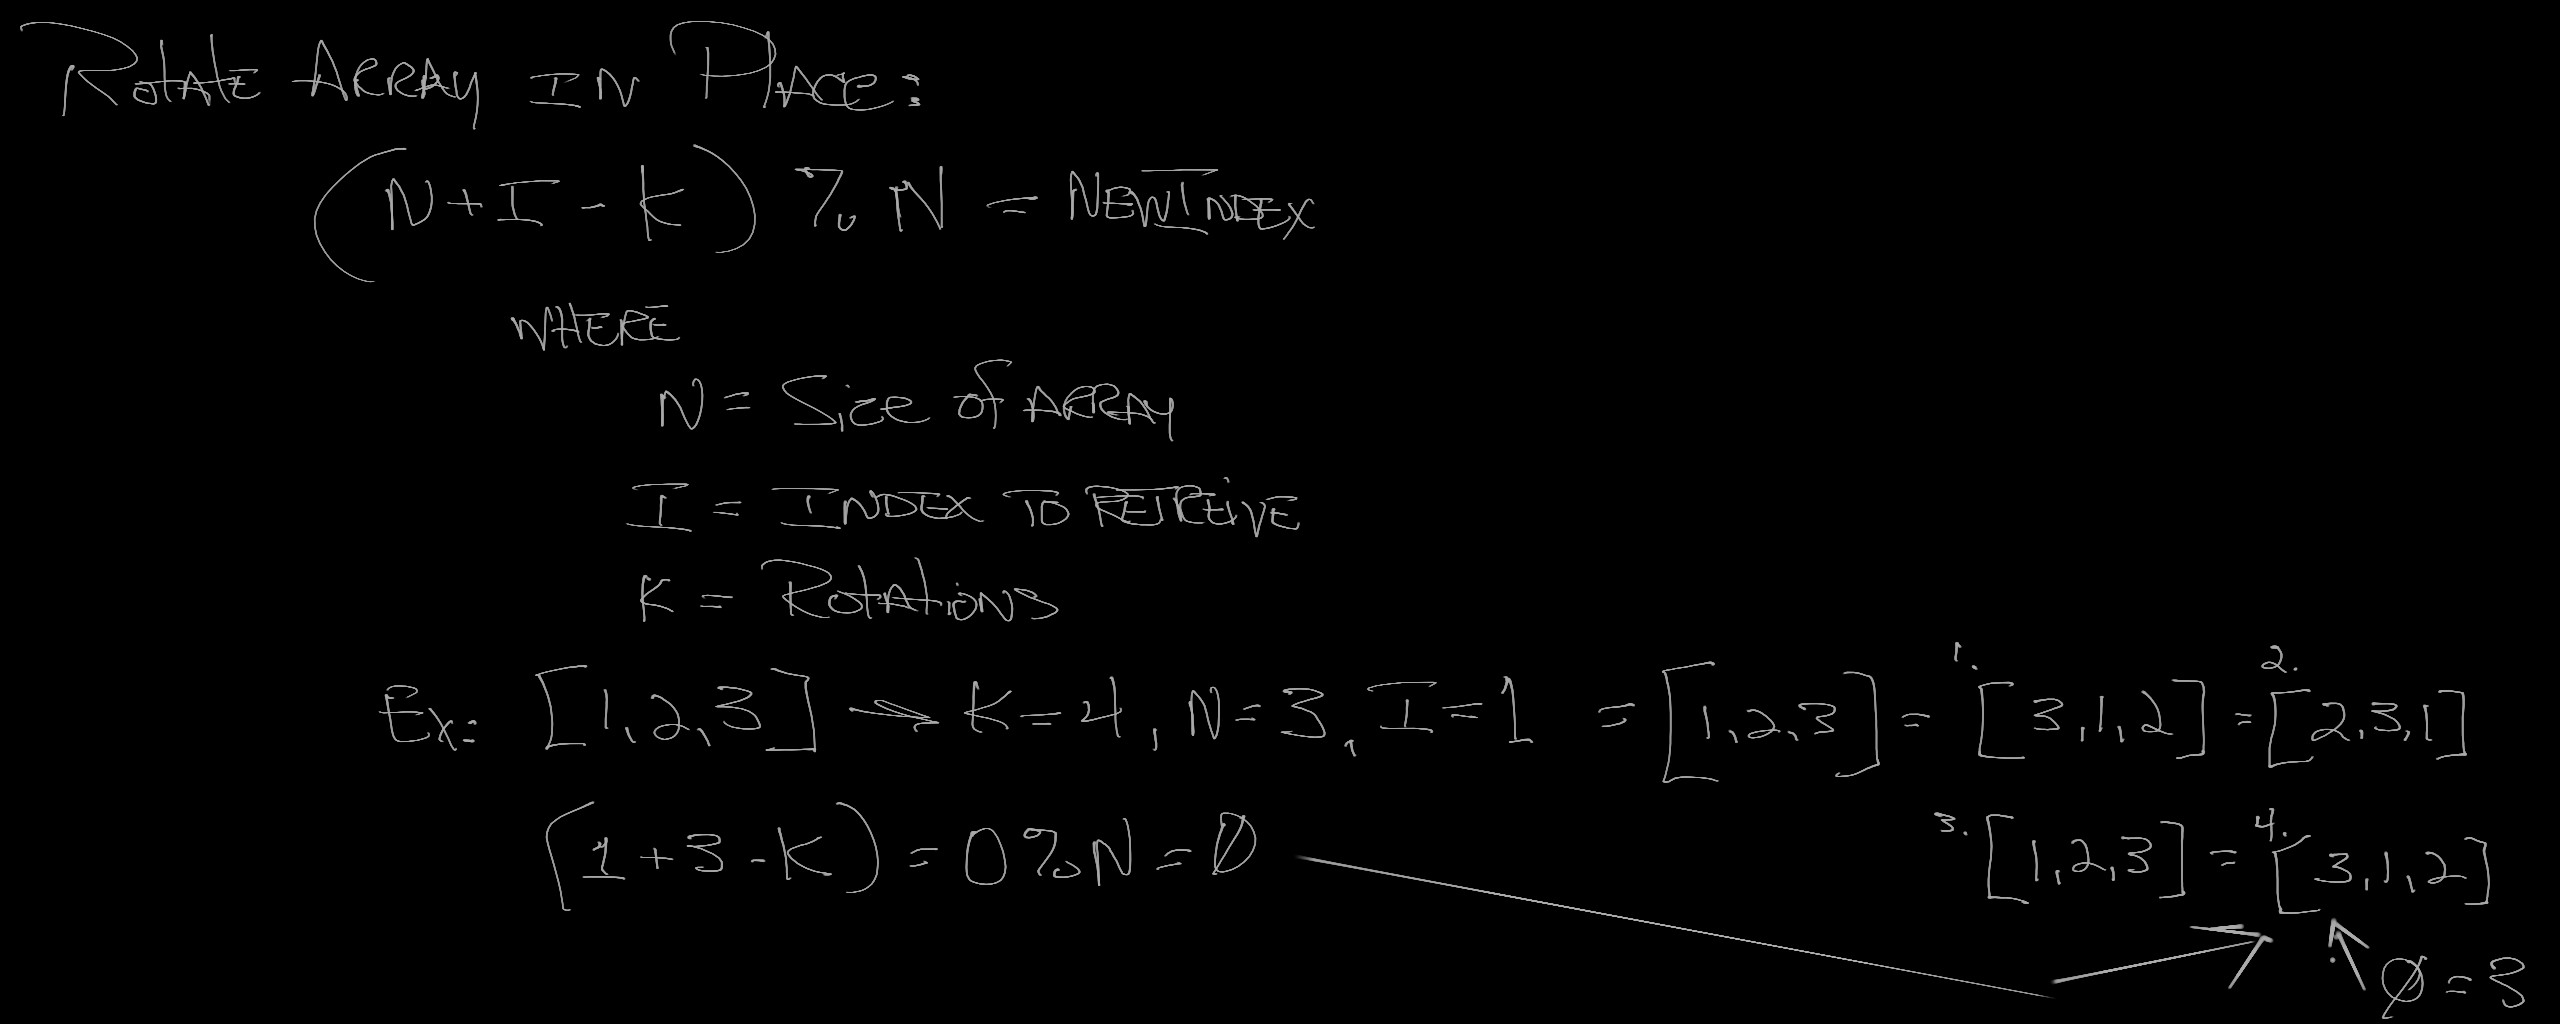 Rotate Array in Place:
(N+I-K) % N = NewIndex
where
N = Size of array
I = Index to retreive
K = Rotations
1. 2.
Ex: [1,2,3] → K=4, N=3, I=1 = [1,2,3] = [3,1,2] = [2,3,1]
(1+3-K) = 0%N = 0 3. [1,2,3] = 4. [3,1,2]
0 = 3